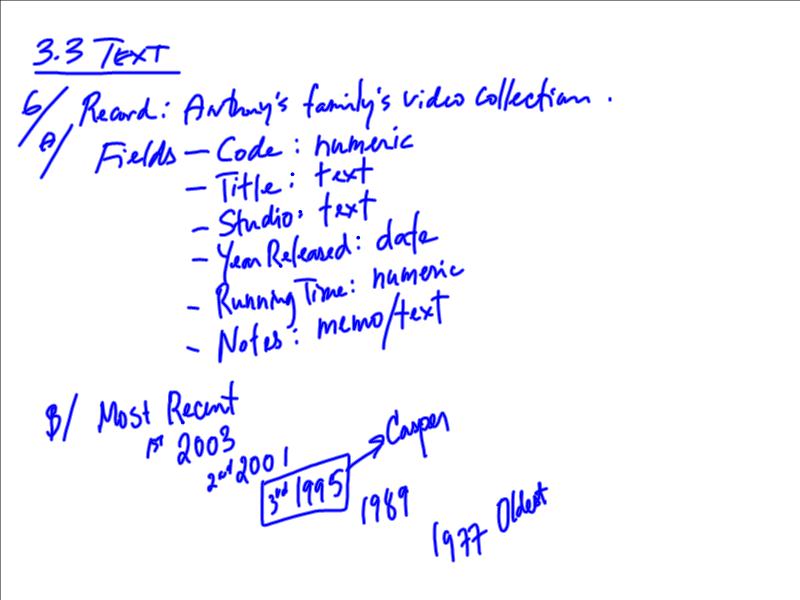 3.3 TEXT
6/ Record: Anthony's family's video collection.
A/ Fields – Code: numeric
– Title: text
– Studio: text
– Year Released: date
– Running Time: numeric
– Notes: memo/text
B/ Most Recent
1st 2003
2nd 2001
3rd 1995 → Casper
1989
1977 Oldest